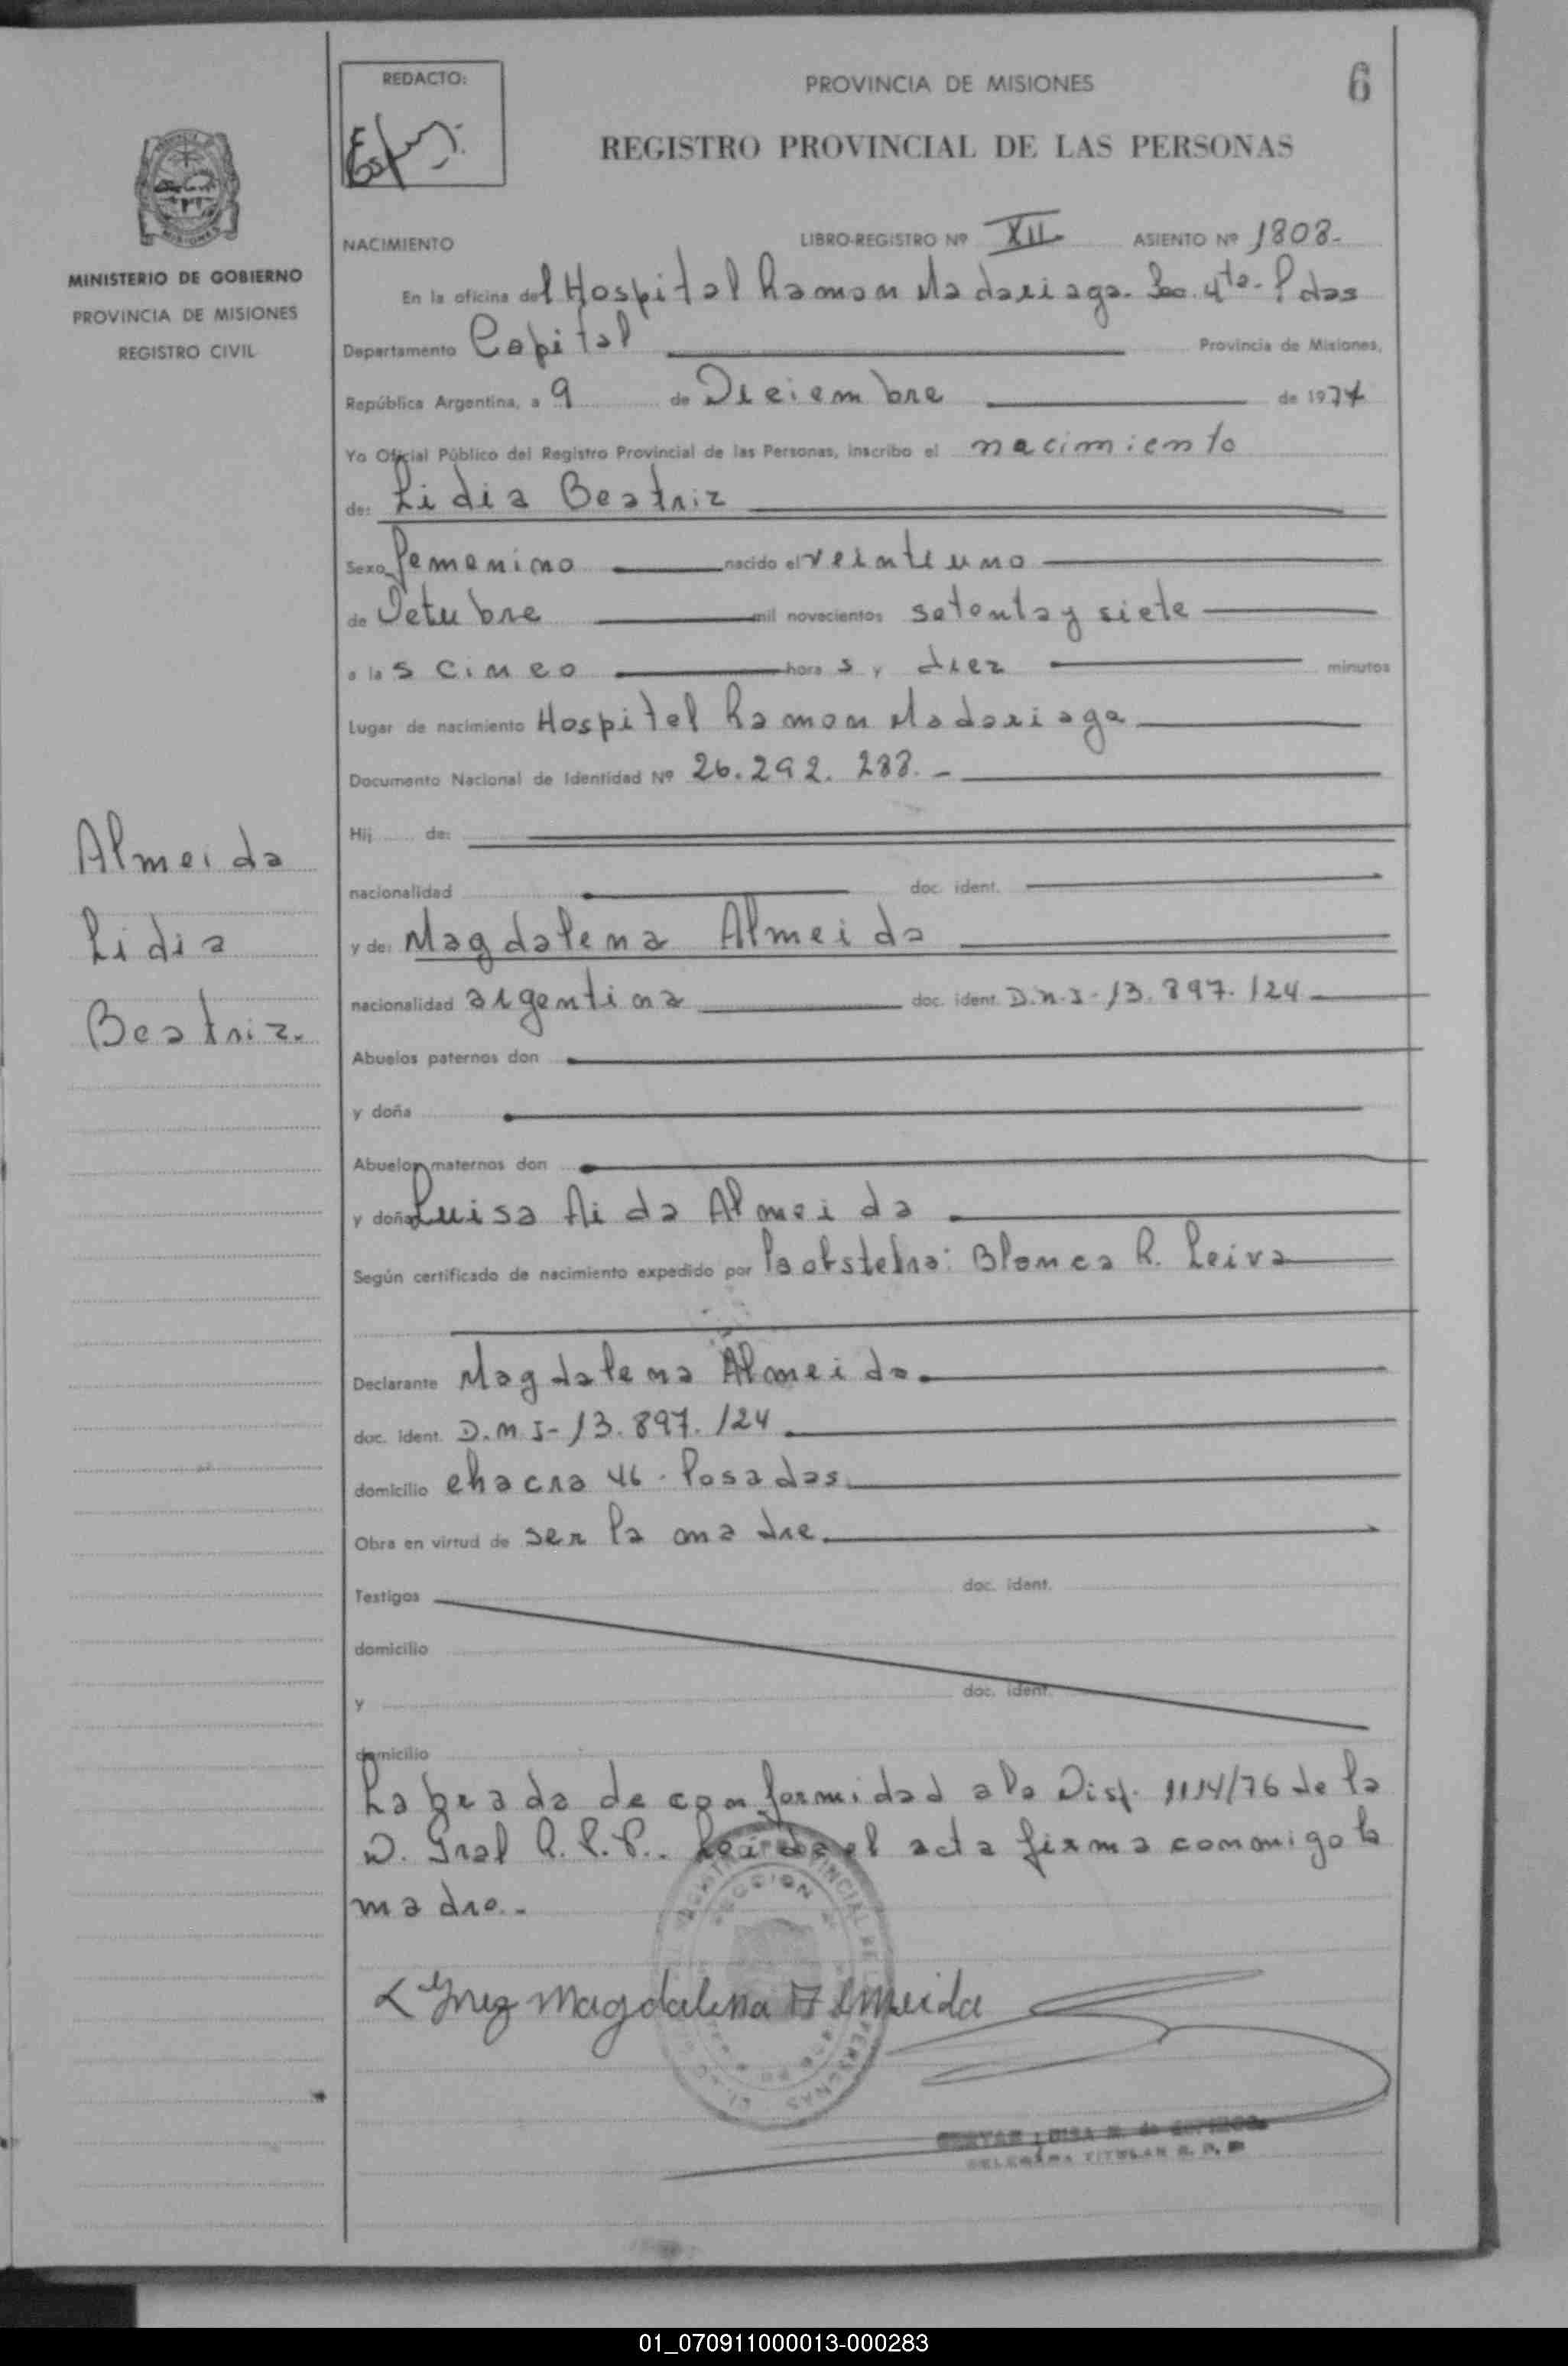 REDACTO:
PROVINCIA DE MISIONES
6
REGISTRO PROVINCIAL DE LAS PERSONAS
MINISTERIO DE GOBIERNO
PROVINCIA DE MISIONES
REGISTRO CIVIL
NACIMIENTO LIBRO-REGISTRO Nº XII ASIENTO Nº 1808-
En la oficina del Hospital Ramon Madariaga. Sec. 4ta. Pdas
Departamento Capital Provincia de Misiones,
República Argentina, a 9 de Diciembre de 1977
Yo Oficial Público del Registro Provincial de las Personas, inscribo el nacimiento
de: Lidia Beatriz
Sexo femenino nacido el veintiuno
de Octubre mil novecientos setenta y siete
a las cinco horas y diez minutos
Lugar de nacimiento Hospital Ramon Madariaga
Documento Nacional de Identidad Nº 26.292.288.-
Hij de:
nacionalidad doc. ident.
y de: Magdalena Almeida
nacionalidad argentina doc. ident. D.N.I-13.897.124
Abuelos paternos don
y doña
Abuelos maternos don
y doña Luisa Aida Almeida
Según certificado de nacimiento expedido por la obstetra: Blanca R. Leiva
Declarante Magdalena Almeida
doc. ident. D.N.I-13.897.124
domicilio chacra 46. Posadas
Obra en virtud de ser la madre
Testigos doc. ident.
domicilio
y doc. ident.
domicilio
Labrada de conformidad a la Disp. 1114/76 de la
D. Gral R.P.P.. Leida el acta firma conmigo la
madre.-
Almeida
Lidia
Beatriz.
Ynez Magdalena Almeida
01_070911000013-000283